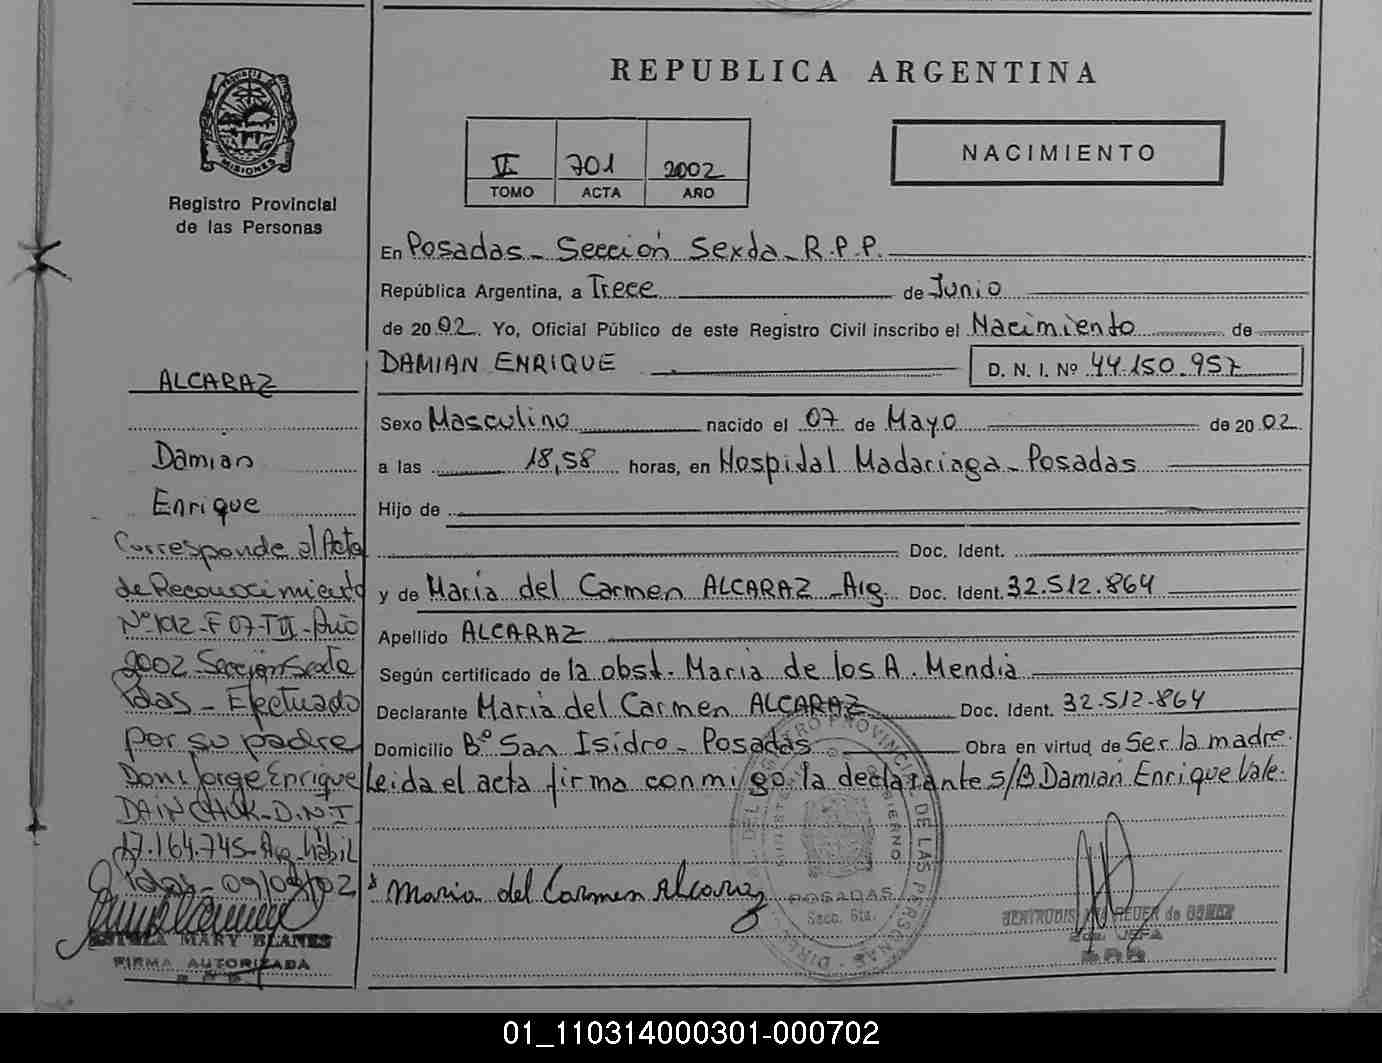 REPUBLICA ARGENTINA
PROVINCIA DE
MISIONES
Registro Provincial
de las Personas
VI 701 2002
TOMO ACTA AÑO
NACIMIENTO
En Posadas - Sección Sexta - R.P.P.
República Argentina, a Trece de Junio
de 2002. Yo, Oficial Público de este Registro Civil inscribo el Nacimiento de
DAMIAN ENRIQUE D. N. I. Nº 44.150.957
Sexo Masculino nacido el 07 de Mayo de 2002
a las 18,58 horas, en Hospital Madariaga - Posadas
Hijo de
Doc. Ident.
y de María del Carmen ALCARAZ - Arg. Doc. Ident. 32.512.864
Apellido ALCARAZ
Según certificado de la obst. María de los A. Mendia
Declarante María del Carmen ALCARAZ Doc. Ident. 32.512.864
Domicilio Bº San Isidro - Posadas Obra en virtud de Ser la madre.
Leida el acta firma conmigo la declarante s/B Damian Enrique Vale.
Maria del Carmen Alcaraz
ALCARAZ
Damian
Enrique
Corresponde al Acta
de Reconocimiento
Nº 192-F 07-T III-Año
2002 Sección Sexta
Pdas - Efectuado
por su padre
Don: Jorge Enrique
DAINCHUK-D.N.I.
17.164.745-Arg-hábil
Pdas-09/09/02
MARY BLANES
FIRMA AUTORIZADA
R P P
DIREC. DEL REGISTRO PROVINCIAL DE LAS PERSONAS
MINISTERIO DE GOBIERNO
POSADAS
Secc. 6ta.
GERTRUDIS REUER de GOMEZ
JEFA
01_110314000301-000702